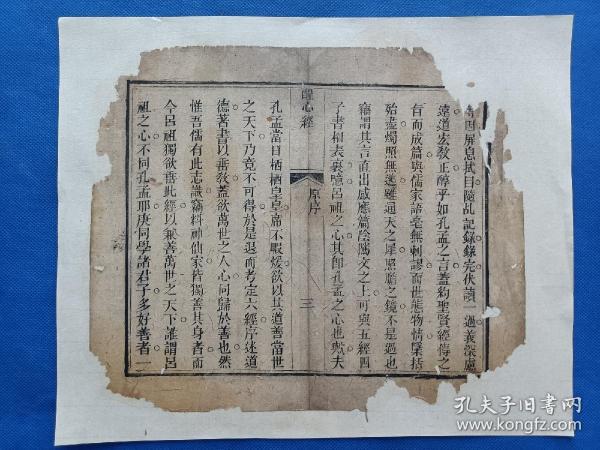 息拭目隨乩記錄錄完伏讀一過義深慮
遠道宏敎正醇乎如孔孟之言蓋約聖賢經傳之
旨而成篇與儒家語毫無刺謬而世態物情縷指
殆盡燭照無遺雖通天之犀照膽之鏡不是過也
竊謂其言直出感應篇陰隲文之上可與五經四
子書相表裏噫呂祖之心其卽孔孟之心也歟夫
醒心經
原序
三
孔孟當日栖栖皇皇席不暇煖欲以其道善當世
之天下乃竟不可得於是退而考定六經序述道
德著書以善敎蓋欲萬世之人心同歸於善也然
惟吾儒有此志識竊料神仙家皆獨善其身者而
今呂祖獨欲藉此經以兼善萬世之天下誰謂呂
祖之心不同孔孟耶庚同學諸君子多好善者一
孔夫子旧书网
www.kongfz.com